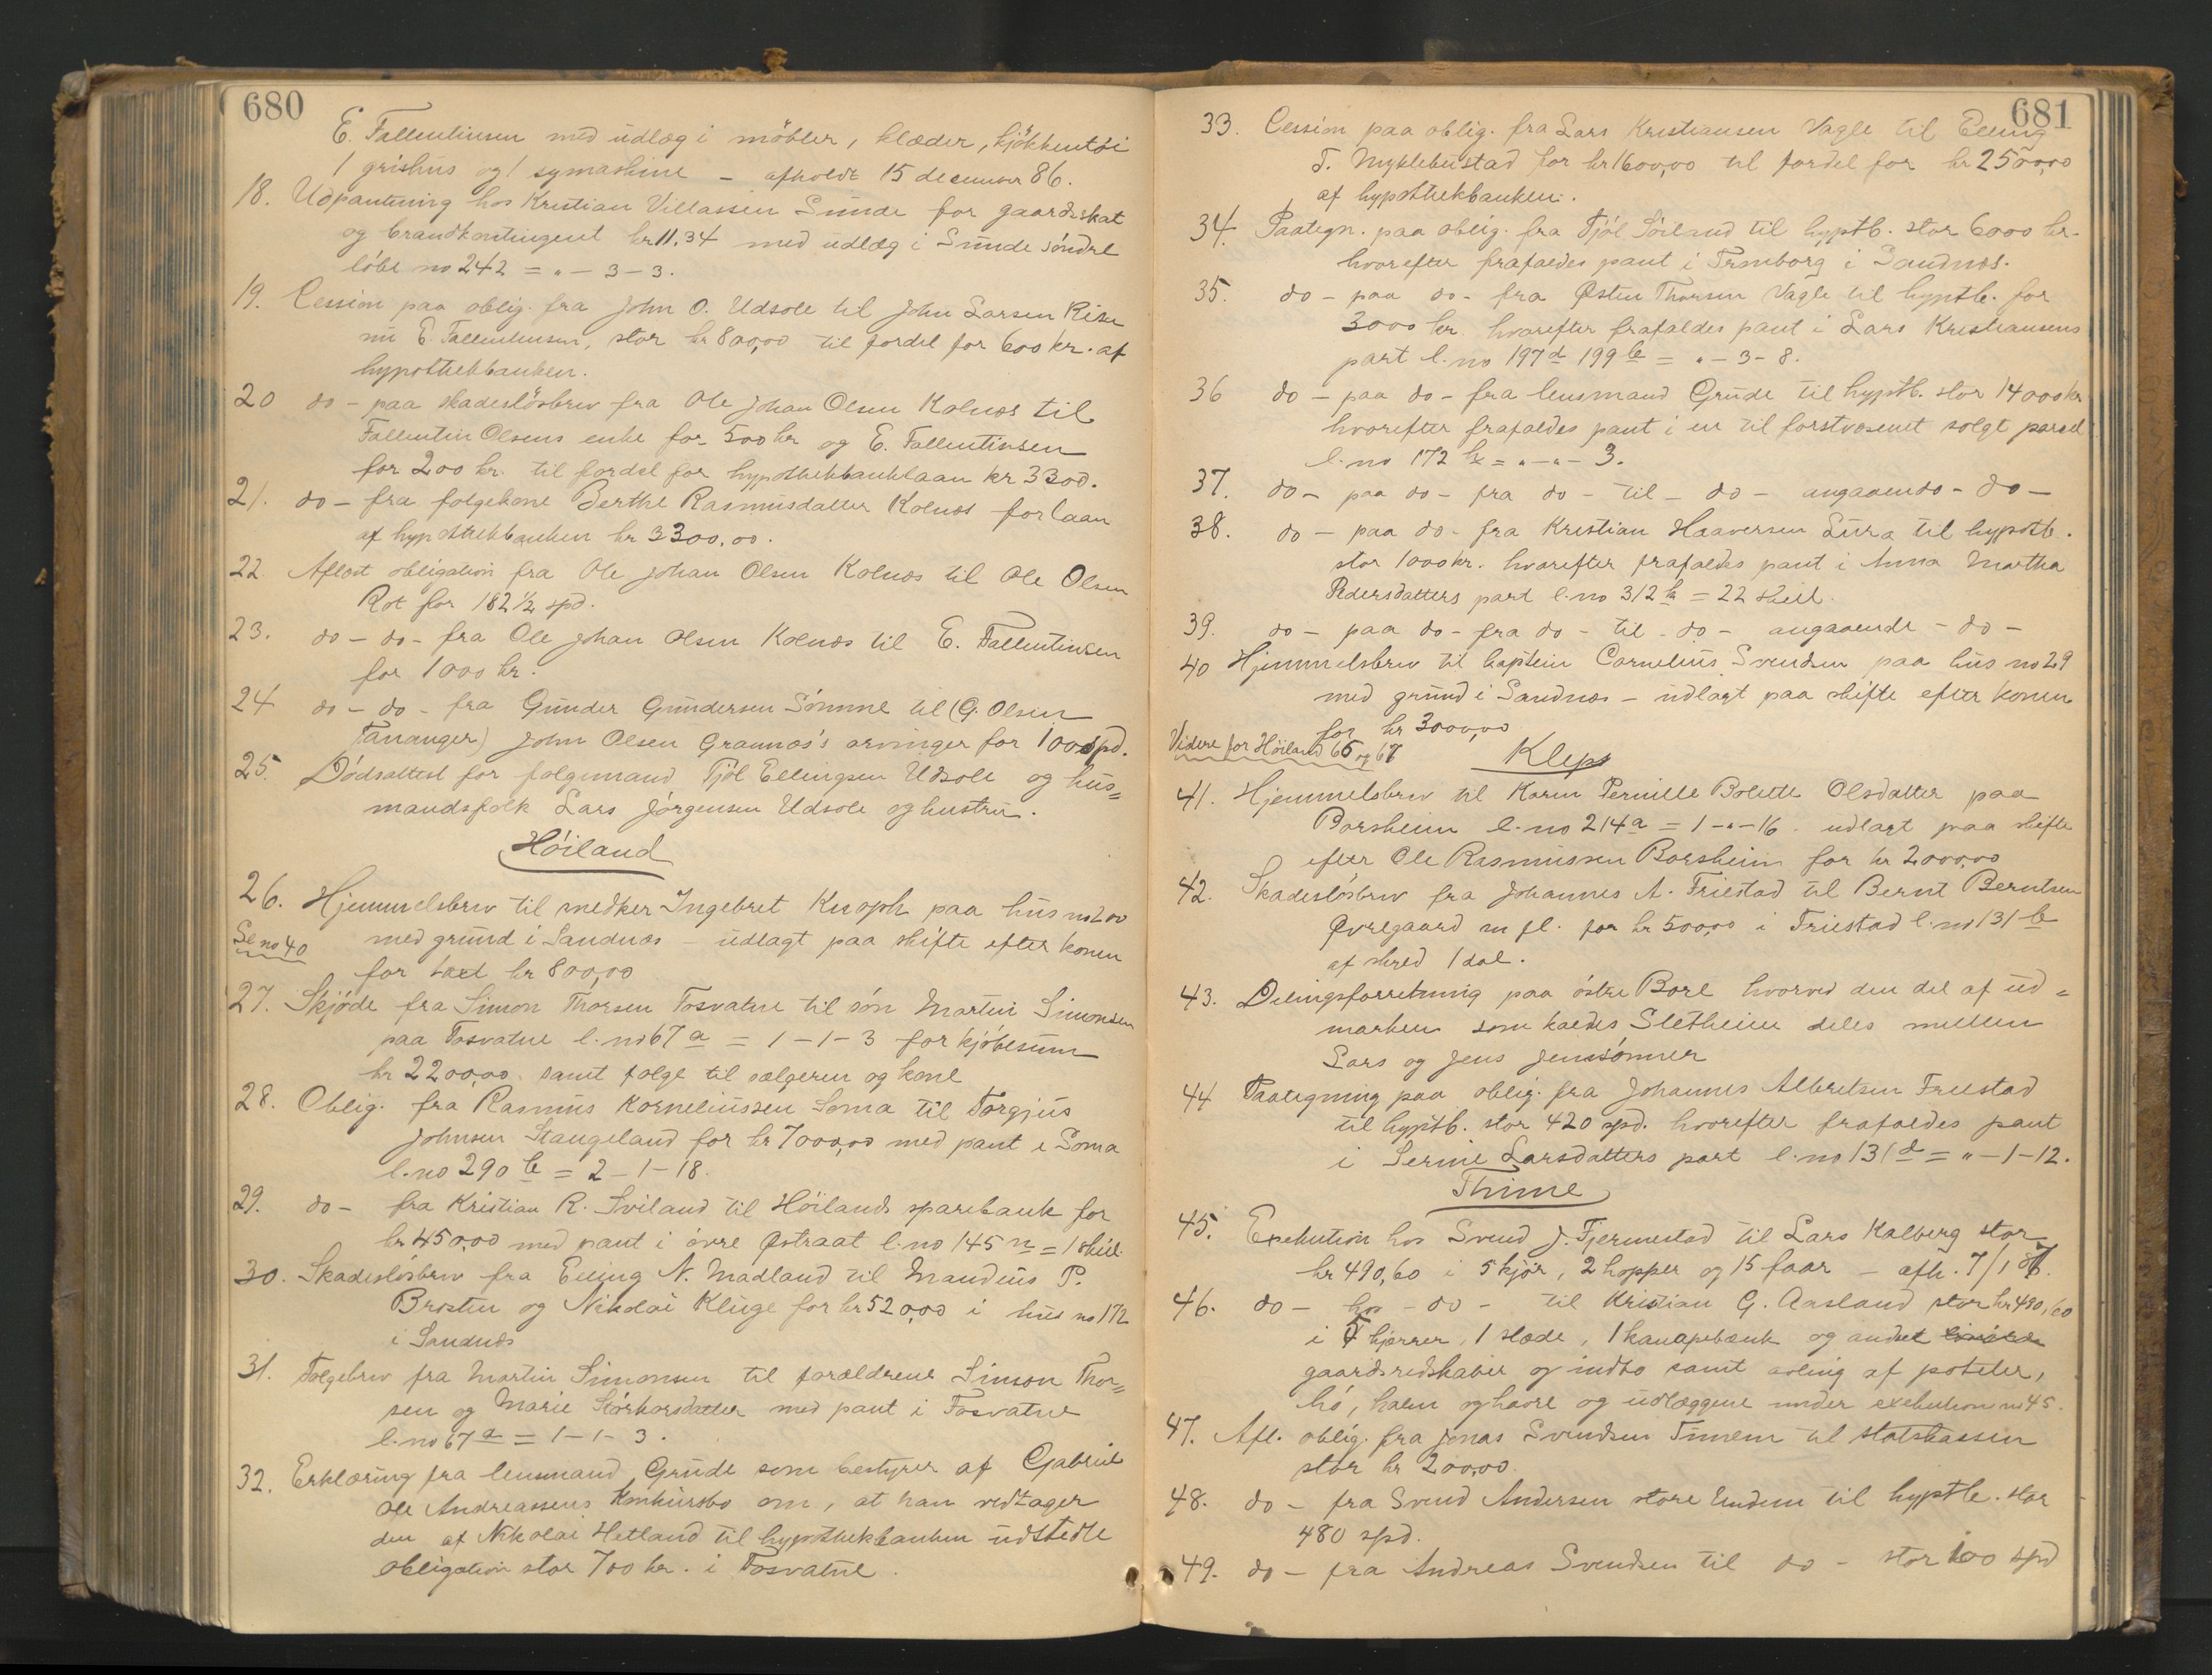 680
E. Fallentinsen med udlæg i möbler, klæder, kjökkentöi
1 grishus og 1 symaskine - afholdt 15 december 86.
18. Udpantning hos Kristian Villassen Sunde for gaardskat
og brandkontingent kr 11.34 med udlæg i Sunde söndre
löbe no 242 = " - 3 - 3.
19. Cession paa oblig. fra John O. Udsole til John Larsen Riser
nu E. Fallentinsen, stor kr 800,00 til fordel for 600 kr. af
hypothekbanken.
20 do - paa skadeslösbrev fra Ole Johan Olsen Kolnæs til
Fallentin Olsens enke for 500 kr og E. Fallentinsen
for 200 kr. til fordel for hypothekbanklaan kr 3300.
21. do - fra folgekone Berthe Rasmusdatter Kolnæs for laan
af hypothekbanken kr 3300.00.
22. Aflæst obligation fra Ole Johan Olsen Kolnæs til Ole Olsen
Rot for 182 1/2 spd.
23. do - do - fra Ole Johan Olsen Kolnæs til E. Fallentinsen
for 1000 kr.
24 do - do - fra Gunder Gundersen Sömme til (G. Olsen
Tananger) John Olsen Grannæs's arvinger for 100 spd.
25. Dödsattest for folgemand Tjöl Ellingsen Udsole og hus=
mandsfolk Lars Jörgensen Udsole og hustru.
Höiland
26. Hjemmelsbrev til snedker Ingebret Knoph paa hus no 200
Se no 40 med grund i Sandnæs - udlagt paa skifte efter konen
for taxt kr 800,00
27. Skjöde fra Simon Thorsen Fosvatne til sön Martin Simonsen
paa Fosvatne l. no 67 a = 1 - 1 - 3 for kjöbesum
kr 2200,00 samt folge til sælgeren og kone
28. Oblig. fra Rasmus Korneliussen Soma til Torgjus
Johnsen Stangeland for kr 7000,00 med pant i Soma
l. no 290 b = 2 - 1 - 18.
29. do - fra Kristian R. Sviland til Höilands sparebank for
kr 450,00 med pant i övre Østraat l. no 145 n = 1 skill.
30. Skadeslösbrev fra Elling N. Madland til Maudeus P.
Brosten og Nikolai Kluge for kr 520,00 i hus no 172
i Sandnæs
31. Folgebrev fra Martin Simonsen til forældrene Simon Thor=
sen og Marie Störkorsdatter med pant i Fosvatne
l. no 67 a = 1 - 1 - 3.
32. Erklæring fra lensmand Grude som bestyrer af Gabriel
Ole Andreassens konkursbo om, at han vedtager
den af Nikolai Hetland til hypothekbanken udstedte
obligation stor 700 kr. i Fosvatne.
681
33. Cession paa oblig. fra Lars Kristiansen Vagle til Elling
T. Myklebustad for kr 1600,00 til fordel for kr 2500,00
af hypothekbanken.
34. Paategn. paa oblig. fra Tjöl Söiland til hyptb. stor 6000 kr.
hvorefter frafaldes pant i Tronborg i Sandnæs.
35. do - paa do - fra Østen Thorsen Vagle til hyptb. for
3000 kr. hvorefter frafaldes pant i Lars Kristiansens
part l. no 197 d 199 b = " - 3 - 8.
36 do - paa do - fra lensmand Grude til hyptb. stor 14000 kr
hvorefter frafaldes pant i en til forstvæsenet solgt parcel
l. no 172 h = " - " - 3.
37. do - paa do - fra do - til - do - angaaende - do -
38. do - paa do - fra Kristian Haaversen Lura til hypotb.
stor 1000 kr. hvorefter frafaldes pant i Anna Martha
Pedersdatters part l. no 312 h = 22 skill.
39. do - paa do - fra do - til - do - angaaende - do -
40 Hjemmelsbrev til kaptein Cornelius Svendsen paa hus no 29
med grund i Sandnæs - udlagt paa skifte efter konen
for kr 3000,00
Videre for Höiland 65 og 67
Klep
41. Hjemmelsbrev til Karen Pernille Bolette Olsdatter paa
Borsheim l. no 214 a = 1 - " - 16. udlagt paa skifte
efter Ole Rasmussen Borsheim for kr 2000,00
42. Skadeslösbrev fra Johannes A. Friestad til Bernt Berntsen
Øvregaard m fl. for kr 500,00 i Friestad l. no 131 b
af skyld 1 dal.
43. Delingsforretning paa östre Bore hvorved den del af ud=
marken som kaldes Sletheien deles mellem
Lars og Jens Jenssönner
44 Paategning paa oblig. fra Johannes Albretsen Friestad
til hyptb. stor 420 spd. hvorefter frafaldes pant
i Serine Larsdatters part l. no 131 d = " - 1 - 12.
Thime
45. Exekution hos Svend J. Fjermestad til Lars Kalberg stor
kr 490,60 i 5 kjör, 2 hopper og 15 faar - afh. 7/1 87.
46. do - hos - do - til Kristian G. Aasland stor kr 490,60
i 4 kjærrer, 1 slæde, 1 kanapebænk og andet
gaardsredskaber og indbo samt avling af poteter,
hö, halm og havre og udlæggene under exekution no 45.
47. Afl. oblig. fra Jonas Svendsen Tunem til statskassen
stor kr 200,00.
48. do - fra Svend Andersen store Undem til hyptb. stor
480 spd.
49. do - fra Andreas Svendsen til do - stor 100 spd